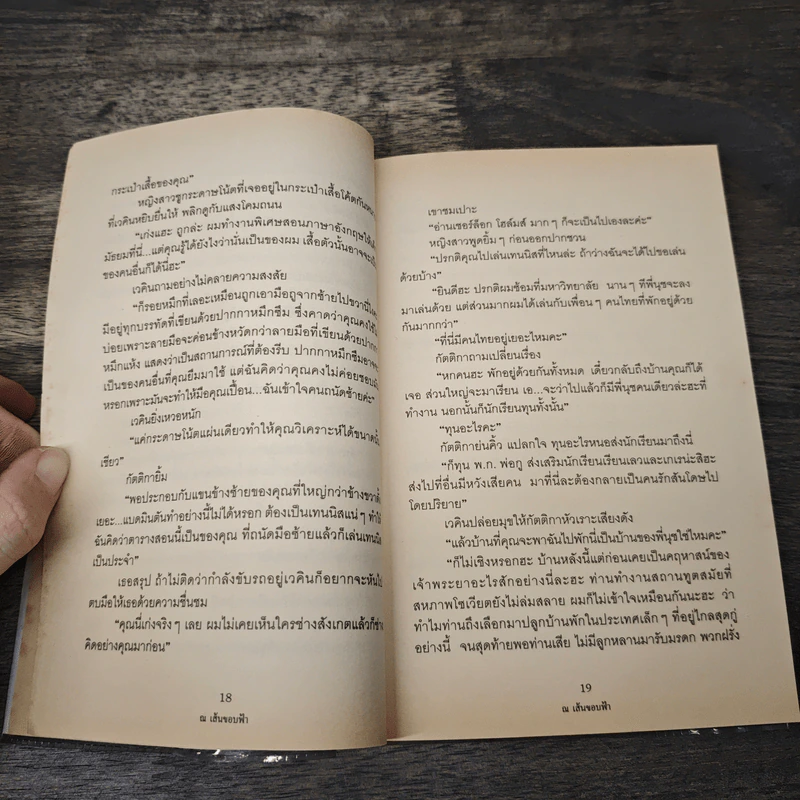 กระเป๋าเสื้อของคุณ”
หญิงสาวชูกระดาษโน้ตที่เจออยู่ในกระเป๋าเสื้อโค้ตกันหนาว
ที่เวคินหยิบยื่นให้ พลิกดูกับแสงโคมถนน
“เก่งแฮะ ถูกล่ะ ผมทำงานพิเศษสอนภาษาอังกฤษให้เด็ก
มัธยมที่นี่...แต่คุณรู้ได้ยังไงว่านั่นเป็นของผม เสื้อตัวนั้นอาจจะเป็น
ของคนอื่นก็ได้นี่ฮะ”
เวคินถามอย่างไม่คลายความสงสัย
“ก็รอยหมึกที่เลอะเหมือนถูกเอามือถูจากซ้ายไปขวานี่ไงคะ
มีอยู่ทุกบรรทัดที่เขียนด้วยปากกาหมึกซึม ซึ่งคาดว่าคุณคงใช้ไม่
บ่อยเพราะลายมือจะค่อนข้างหวัดกว่าลายมือที่เขียนด้วยปากกา
หมึกแห้ง แสดงว่าเป็นสถานการณ์ที่ต้องรีบ ปากกาหมึกซึมอาจจะ
เป็นของคนอื่นที่คุณยืมมาใช้ แต่ฉันคิดว่าคุณคงไม่ค่อยชอบมัน
หรอกเพราะมันจะทำให้มือคุณเปื้อน...ฉันเข้าใจคนถนัดซ้ายค่ะ”
เวคินยิ่งเหวอหนัก
“แค่กระดาษโน้ตแผ่นเดียวทำให้คุณวิเคราะห์ได้ขนาดนั้น
เชียว”
กัตติกายิ้ม
“พอประกอบกับแขนข้างซ้ายของคุณที่ใหญ่กว่าข้างขวาตั้ง
เยอะ...แบดมินตันทำอย่างนี้ไม่ได้หรอก ต้องเป็นเทนนิสแน่ๆ ทำให้
ฉันคิดว่าตารางสอนนี้เป็นของคุณ ที่ถนัดมือซ้ายแล้วก็เล่นเทนนิส
เป็นประจำ”
เธอสรุป ถ้าไม่ติดว่ากำลังขับรถอยู่เวคินก็อยากจะหันไป
ตบมือให้เธอด้วยความชื่นชม
“คุณนี่เก่งจริงๆ เลย ผมไม่เคยเห็นใครช่างสังเกตแล้วก็ช่าง
คิดอย่างคุณมาก่อน”
18
ณ เส้นขอบฟ้า
เขาชมเปาะ
“อ่านเชอร์ล็อก โฮล์มส์ มากๆ ก็จะเป็นไปเองละค่ะ”
หญิงสาวพูดยิ้มๆ ก่อนออกปากชวน
“ปรกติคุณไปเล่นเทนนิสที่ไหนล่ะ ถ้าว่างฉันจะได้ไปขอเล่น
ด้วยบ้าง”
“ยินดีฮะ ปรกติผมซ้อมที่มหาวิทยาลัย นานๆ ทีพี่นุชจะลง
มาเล่นด้วย แต่ส่วนมากผมได้เล่นกับเพื่อนๆ คนไทยที่พักอยู่ด้วย
กันมากกว่า”
“ที่นี่มีคนไทยอยู่เยอะไหมคะ”
กัตติกาถามเปลี่ยนเรื่อง
“หกคนฮะ พักอยู่ด้วยกันทั้งหมด เดี๋ยวกลับถึงบ้านคุณก็ได้
เจอ ส่วนใหญ่จะมาเรียน เอ...จะว่าไปแล้วก็มีพี่นุชคนเดียวล่ะฮะที่
ทำงาน นอกนั้นก็นักเรียนทุนทั้งนั้น”
“ทุนอะไรคะ”
กัตติกาย่นคิ้ว แปลกใจ ทุนอะไรหนอส่งนักเรียนมาถึงนี่
“ก็ทุน พ.ก. พ่อกู ส่งเสริมนักเรียนเรียนเลวและเกเรน่ะสิฮะ
ส่งไปที่อื่นมีหวังเสียคน มาที่นี่ละต้องกลายเป็นคนรักสันโดษไป
โดยปริยาย”
เวคินปล่อยมุขให้กัตติกาหัวเราะเสียงดัง
“แล้วบ้านที่คุณจะพาฉันไปพักนี่เป็นบ้านของพี่นุชใช่ไหมคะ”
“ก็ไม่เชิงหรอกฮะ บ้านหลังนี้แต่ก่อนเคยเป็นคฤหาสน์ของ
เจ้าพระยาอะไรสักอย่างนี่ละฮะ ท่านทำงานสถานทูตสมัยที่
สหภาพโซเวียตยังไม่ล่มสลาย ผมก็ไม่เข้าใจเหมือนกันนะฮะ ว่า
ทำไมท่านถึงเลือกมาปลูกบ้านพักในประเทศเล็กๆ ที่อยู่ไกลสุดกู่
อย่างนี้ จนสุดท้ายพอท่านเสีย ไม่มีลูกหลานมารับมรดก พวกฝรั่ง
19
ณ เส้นขอบฟ้า